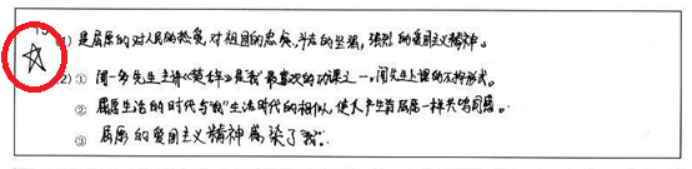 (1) 是屈原的对人民的热爱,对祖国的忠矣,斗志的坚强,强烈的爱国主义精神。
(2) ① 闻一多先生主讲《楚辞》是我"最喜欢的功课之一,闻先生上课的不拘形式。
② 屈原生活的时代与我"生活时代的相似,使人产生着屈原一样共鸣同感。
③ 屈原的爱国主义精神感染了我".